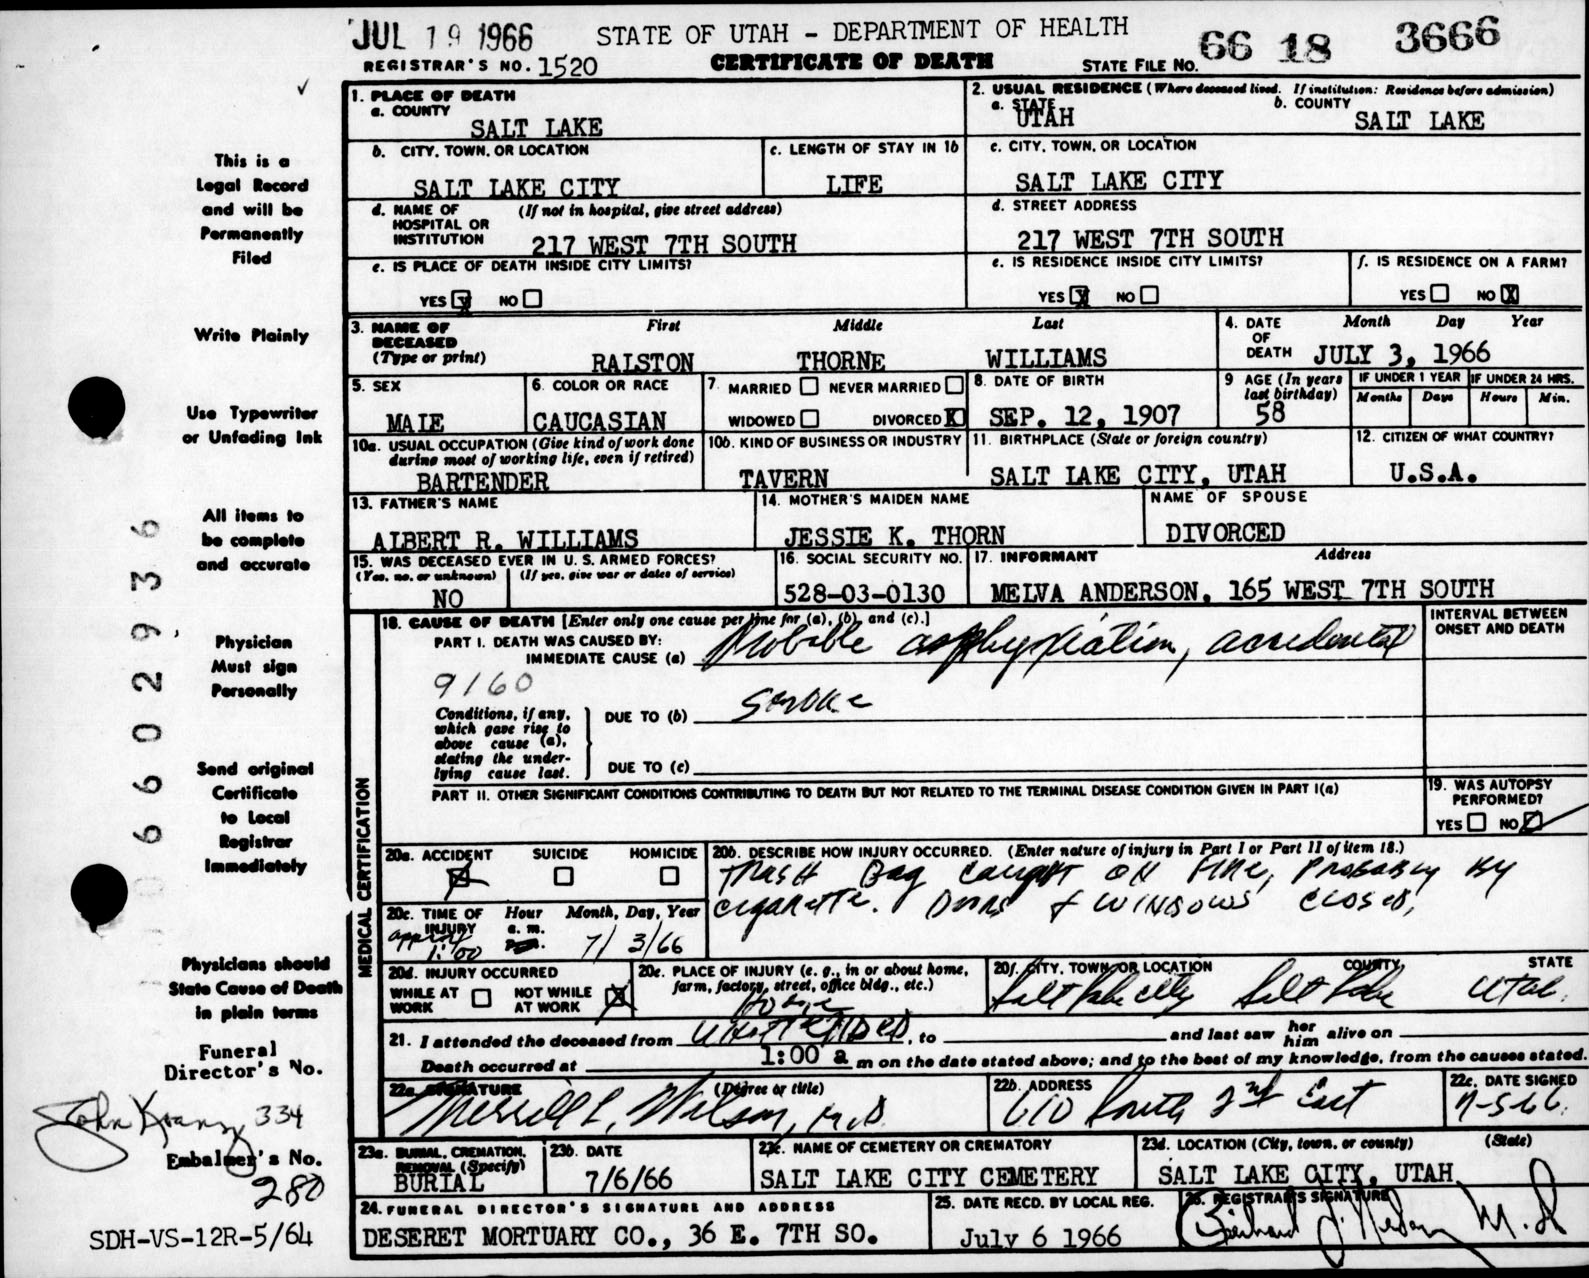 JUL 19 1966 STATE OF UTAH - DEPARTMENT OF HEALTH 66 18 3666
REGISTRAR'S NO. 1520 CERTIFICATE OF DEATH STATE FILE NO.
1. PLACE OF DEATH
a. COUNTY
SALT LAKE
2. USUAL RESIDENCE (Where deceased lived. If institution: Residence before admission)
a. STATE b. COUNTY
UTAH SALT LAKE
b. CITY, TOWN, OR LOCATION
SALT LAKE CITY
c. LENGTH OF STAY IN 1b
LIFE
c. CITY, TOWN, OR LOCATION
SALT LAKE CITY
d. NAME OF (If not in hospital, give street address)
HOSPITAL OR
INSTITUTION 217 WEST 7TH SOUTH
d. STREET ADDRESS
217 WEST 7TH SOUTH
e. IS PLACE OF DEATH INSIDE CITY LIMITS?
YES X NO
e. IS RESIDENCE INSIDE CITY LIMITS?
YES X NO
f. IS RESIDENCE ON A FARM?
YES NO X
3. NAME OF First Middle Last
DECEASED
(Type or print) RALSTON THORNE WILLIAMS
4. DATE Month Day Year
OF
DEATH JULY 3, 1966
5. SEX
MALE
6. COLOR OR RACE
CAUCASIAN
7. MARRIED NEVER MARRIED
WIDOWED DIVORCED X
8. DATE OF BIRTH
SEP. 12, 1907
9 AGE (In years
last birthday)
58
IF UNDER 1 YEAR IF UNDER 24 HRS.
Months Days Hours Min.
10a. USUAL OCCUPATION (Give kind of work done
during most of working life, even if retired)
BARTENDER
10b. KIND OF BUSINESS OR INDUSTRY
TAVERN
11. BIRTHPLACE (State or foreign country)
SALT LAKE CITY, UTAH
12. CITIZEN OF WHAT COUNTRY?
U.S.A.
13. FATHER'S NAME
ALBERT R. WILLIAMS
14. MOTHER'S MAIDEN NAME
JESSIE K. THORN
NAME OF SPOUSE
DIVORCED
15. WAS DECEASED EVER IN U. S. ARMED FORCES?
(Yes, no, or unknown) (If yes, give war or dates of service)
NO
16. SOCIAL SECURITY NO.
528-03-0130
17. INFORMANT Address
MELVA ANDERSON, 165 WEST 7TH SOUTH
MEDICAL CERTIFICATION
18. CAUSE OF DEATH [Enter only one cause per line for (a), (b), and (c).]
PART I. DEATH WAS CAUSED BY:
IMMEDIATE CAUSE (a) Probable asphyxiation, accidental
INTERVAL BETWEEN
ONSET AND DEATH
9160
Conditions, if any,
which gave rise to
above cause (a),
stating the under-
lying cause last.
DUE TO (b) smoke
DUE TO (c)
PART II. OTHER SIGNIFICANT CONDITIONS CONTRIBUTING TO DEATH BUT NOT RELATED TO THE TERMINAL DISEASE CONDITION GIVEN IN PART I(a)
19. WAS AUTOPSY
PERFORMED?
YES NO
20a. ACCIDENT SUICIDE HOMICIDE
X
20b. DESCRIBE HOW INJURY OCCURRED. (Enter nature of injury in Part I or Part II of item 18.)
Trash Bag caught on Fire, Probably by
cigarette. Doors & windows closed.
20c. TIME OF Hour Month, Day, Year
INJURY a. m.
approx 1:00 p. m. 7/3/66
20d. INJURY OCCURRED
WHILE AT NOT WHILE
WORK AT WORK X
20e. PLACE OF INJURY (e. g., in or about home,
farm, factory, street, office bldg., etc.)
Home
20f. CITY, TOWN, OR LOCATION COUNTY STATE
Salt Lake City Salt Lake Utah
21. I attended the deceased from Unattended, to and last saw her him alive on
Death occurred at 1:00 a m on the date stated above; and to the best of my knowledge, from the causes stated.
22a. SIGNATURE (Degree or title)
Merrill L. Wilson, M.D.
22b. ADDRESS
610 South 2nd East
22c. DATE SIGNED
7-5-66
23a. BURIAL, CREMATION,
REMOVAL (Specify)
BURIAL
23b. DATE
7/6/66
23c. NAME OF CEMETERY OR CREMATORY
SALT LAKE CITY CEMETERY
23d. LOCATION (City, town, or county) (State)
SALT LAKE CITY, UTAH
24. FUNERAL DIRECTOR'S SIGNATURE AND ADDRESS
DESERET MORTUARY CO., 36 E. 7TH SO.
25. DATE RECD. BY LOCAL REG.
July 6 1966
26. REGISTRAR'S SIGNATURE
M. D
This is a
Legal Record
and will be
Permanently
Filed
Write Plainly
Use Typewriter
or Unfading Ink
All items to
be complete
and accurate
Physician
Must sign
Personally
Send original
Certificate
to Local
Registrar
Immediately
Physicians should
State Cause of Death
in plain terms
Funeral
Director's No.
John 334
Embalmer's No.
280
SDH-VS-12R-5/64
6602936